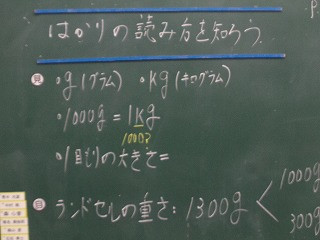 はかりの読み方を知ろう
見 ・g(グラム) ・kg(キログラム)
・1000g = 1kg
1000?
・1目もりの大きさ=
ランドセルの重さ: 1300g < 1000g
300g